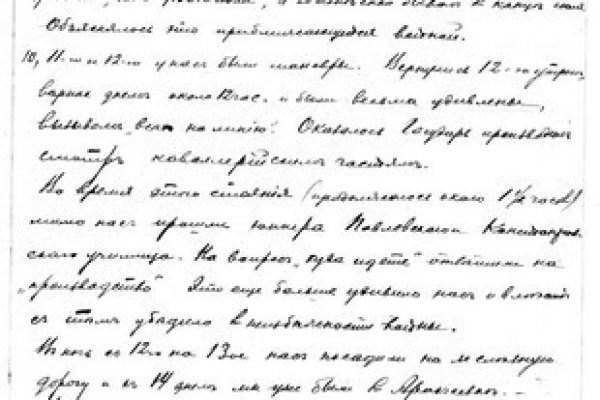 Объяснялось это приближающейся войной.
10, 11-го и 12-го у нас были маневры. Вернулись 12-го утром,
вернее днем около 12 час. и были весьма удивлены,
вызовом „всем на линию". Оказалось Государь производит
смотр кавалерийским частям.
Во время этого стояния (продолжалось около 1½ часов)
мимо нас прошли юнкера Павловского
ского училища. На вопрос „куда идете" ответили на
„производство" Это еще больше удивило нас и
с тем убедило в неизбежности войны.
В ночь с 12-го на 13-ое нас посадили на железную
дорогу и с 14 днем мы уже были в